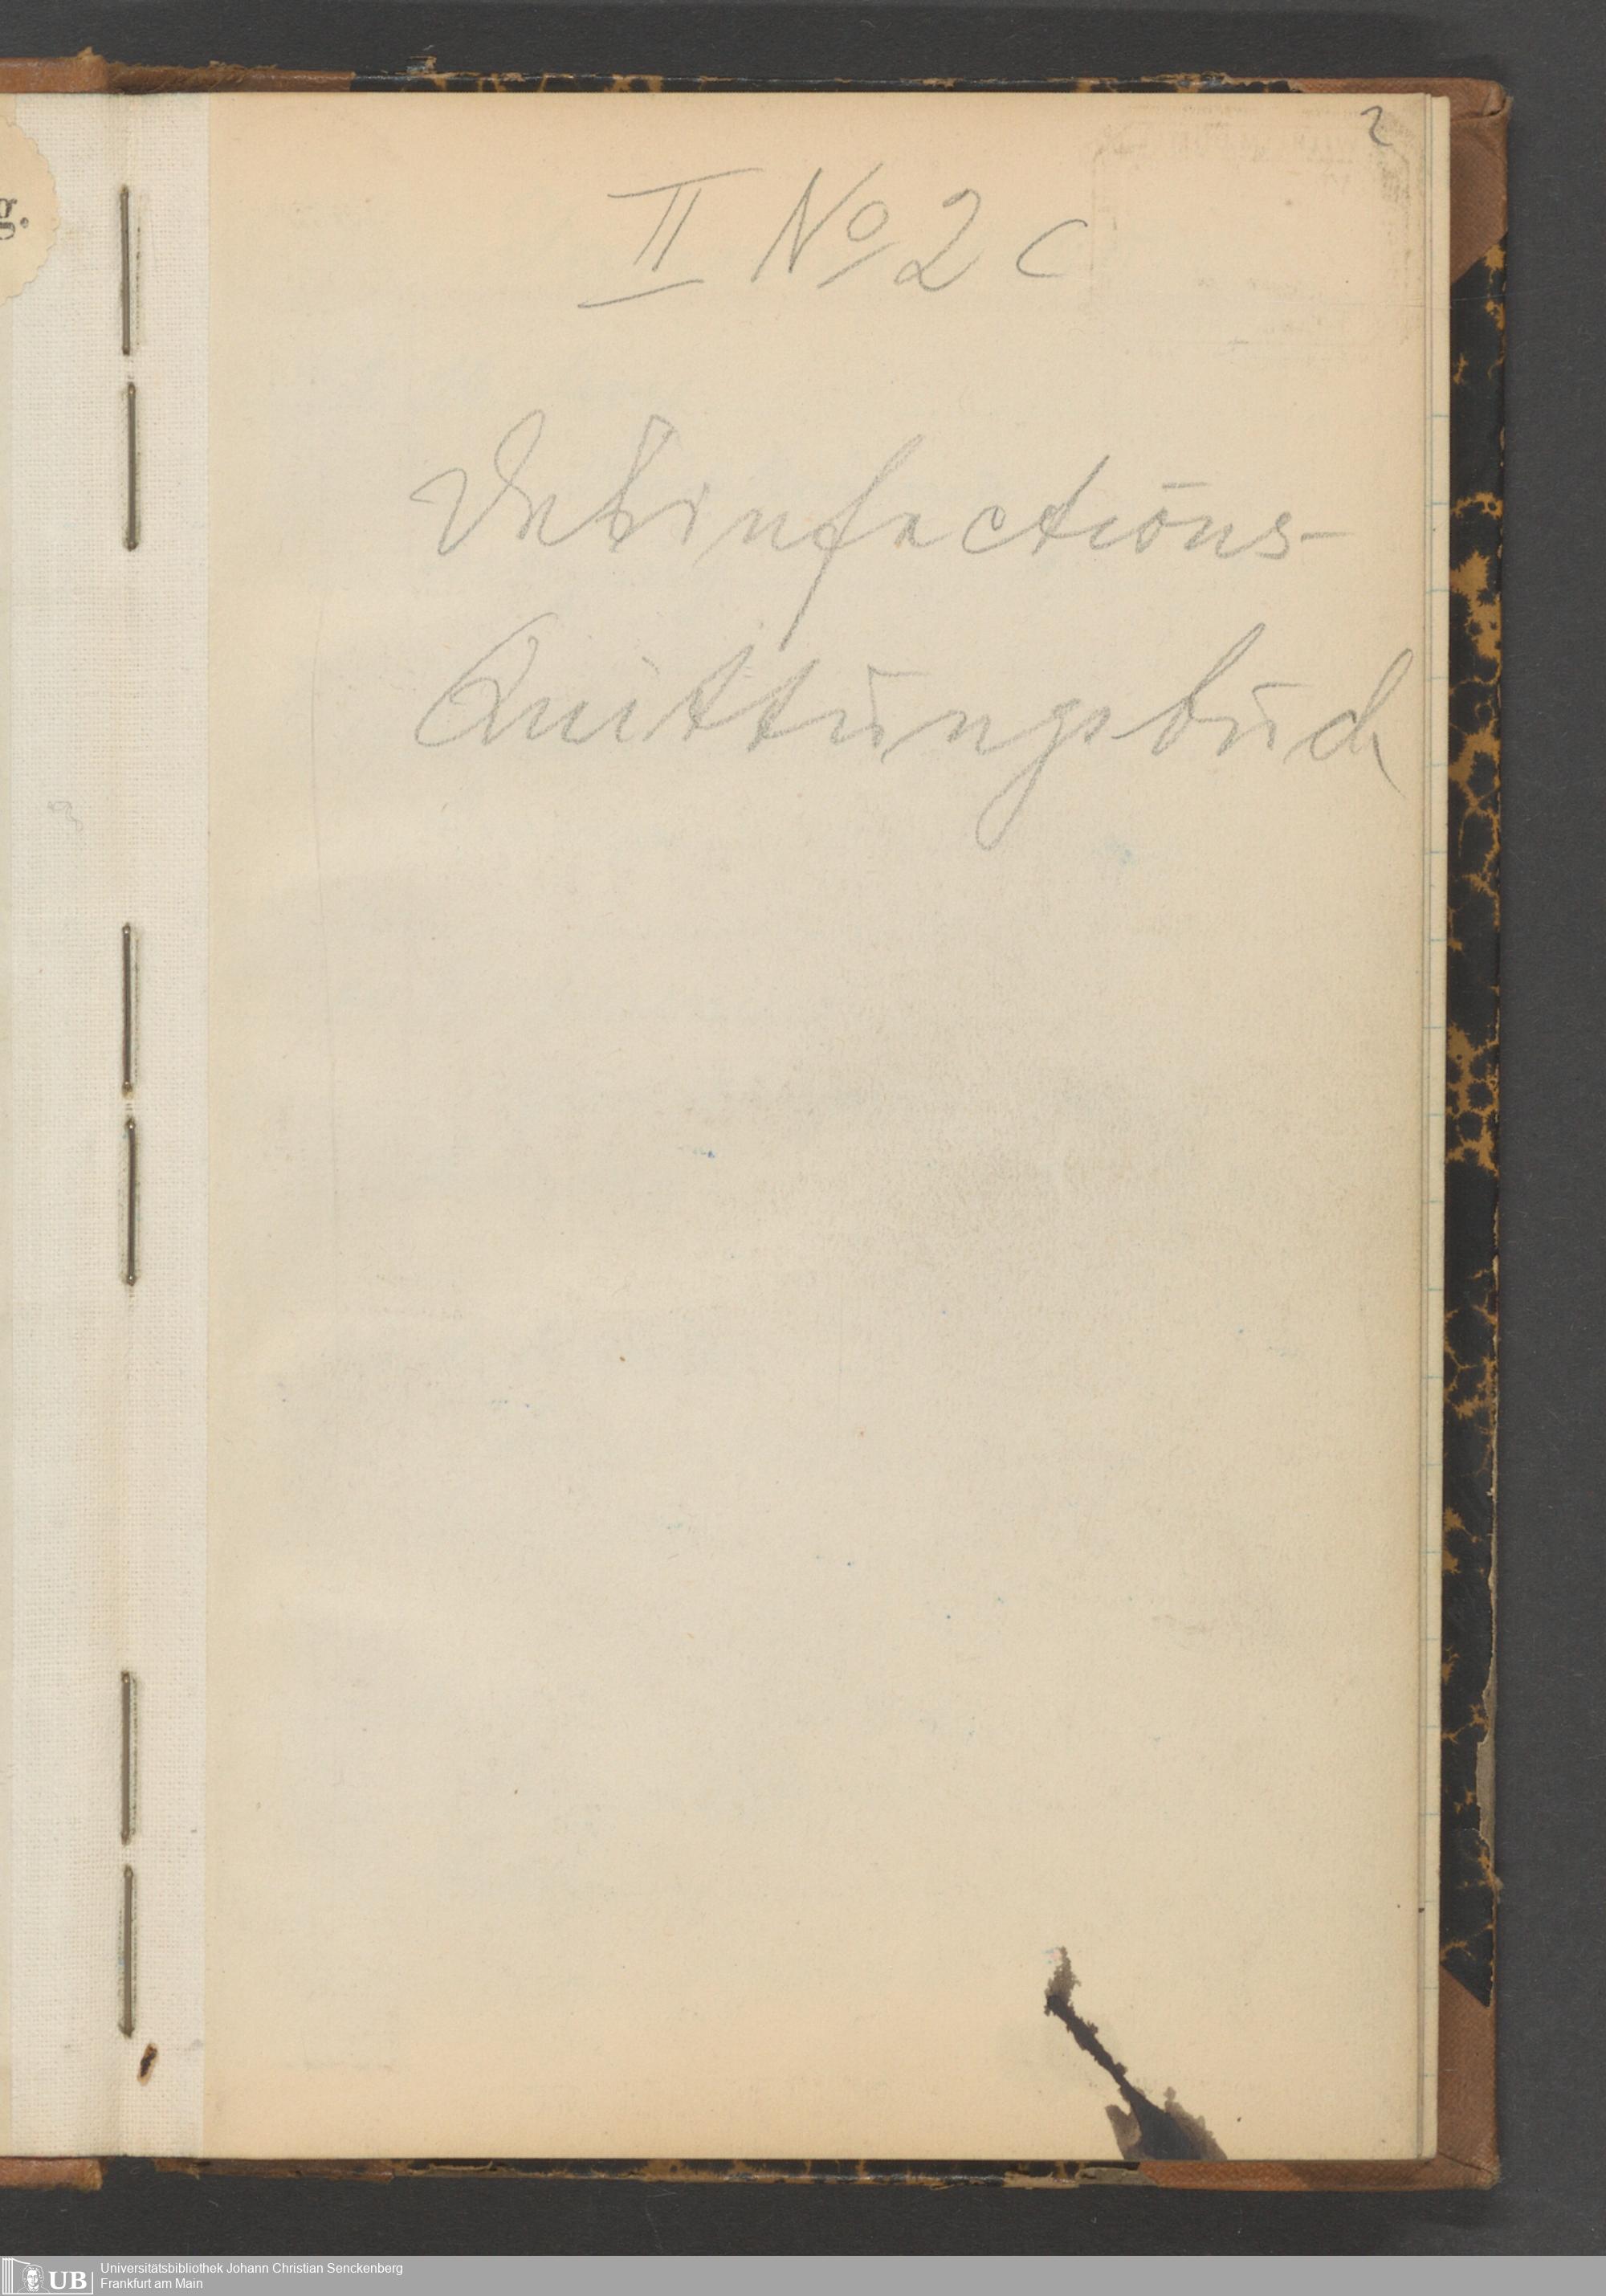 g.
2
II No 2 c
Desinfections-
Quittungsbuch
UB
Universitätsbibliothek Johann Christian Senckenberg
Frankfurt am Main